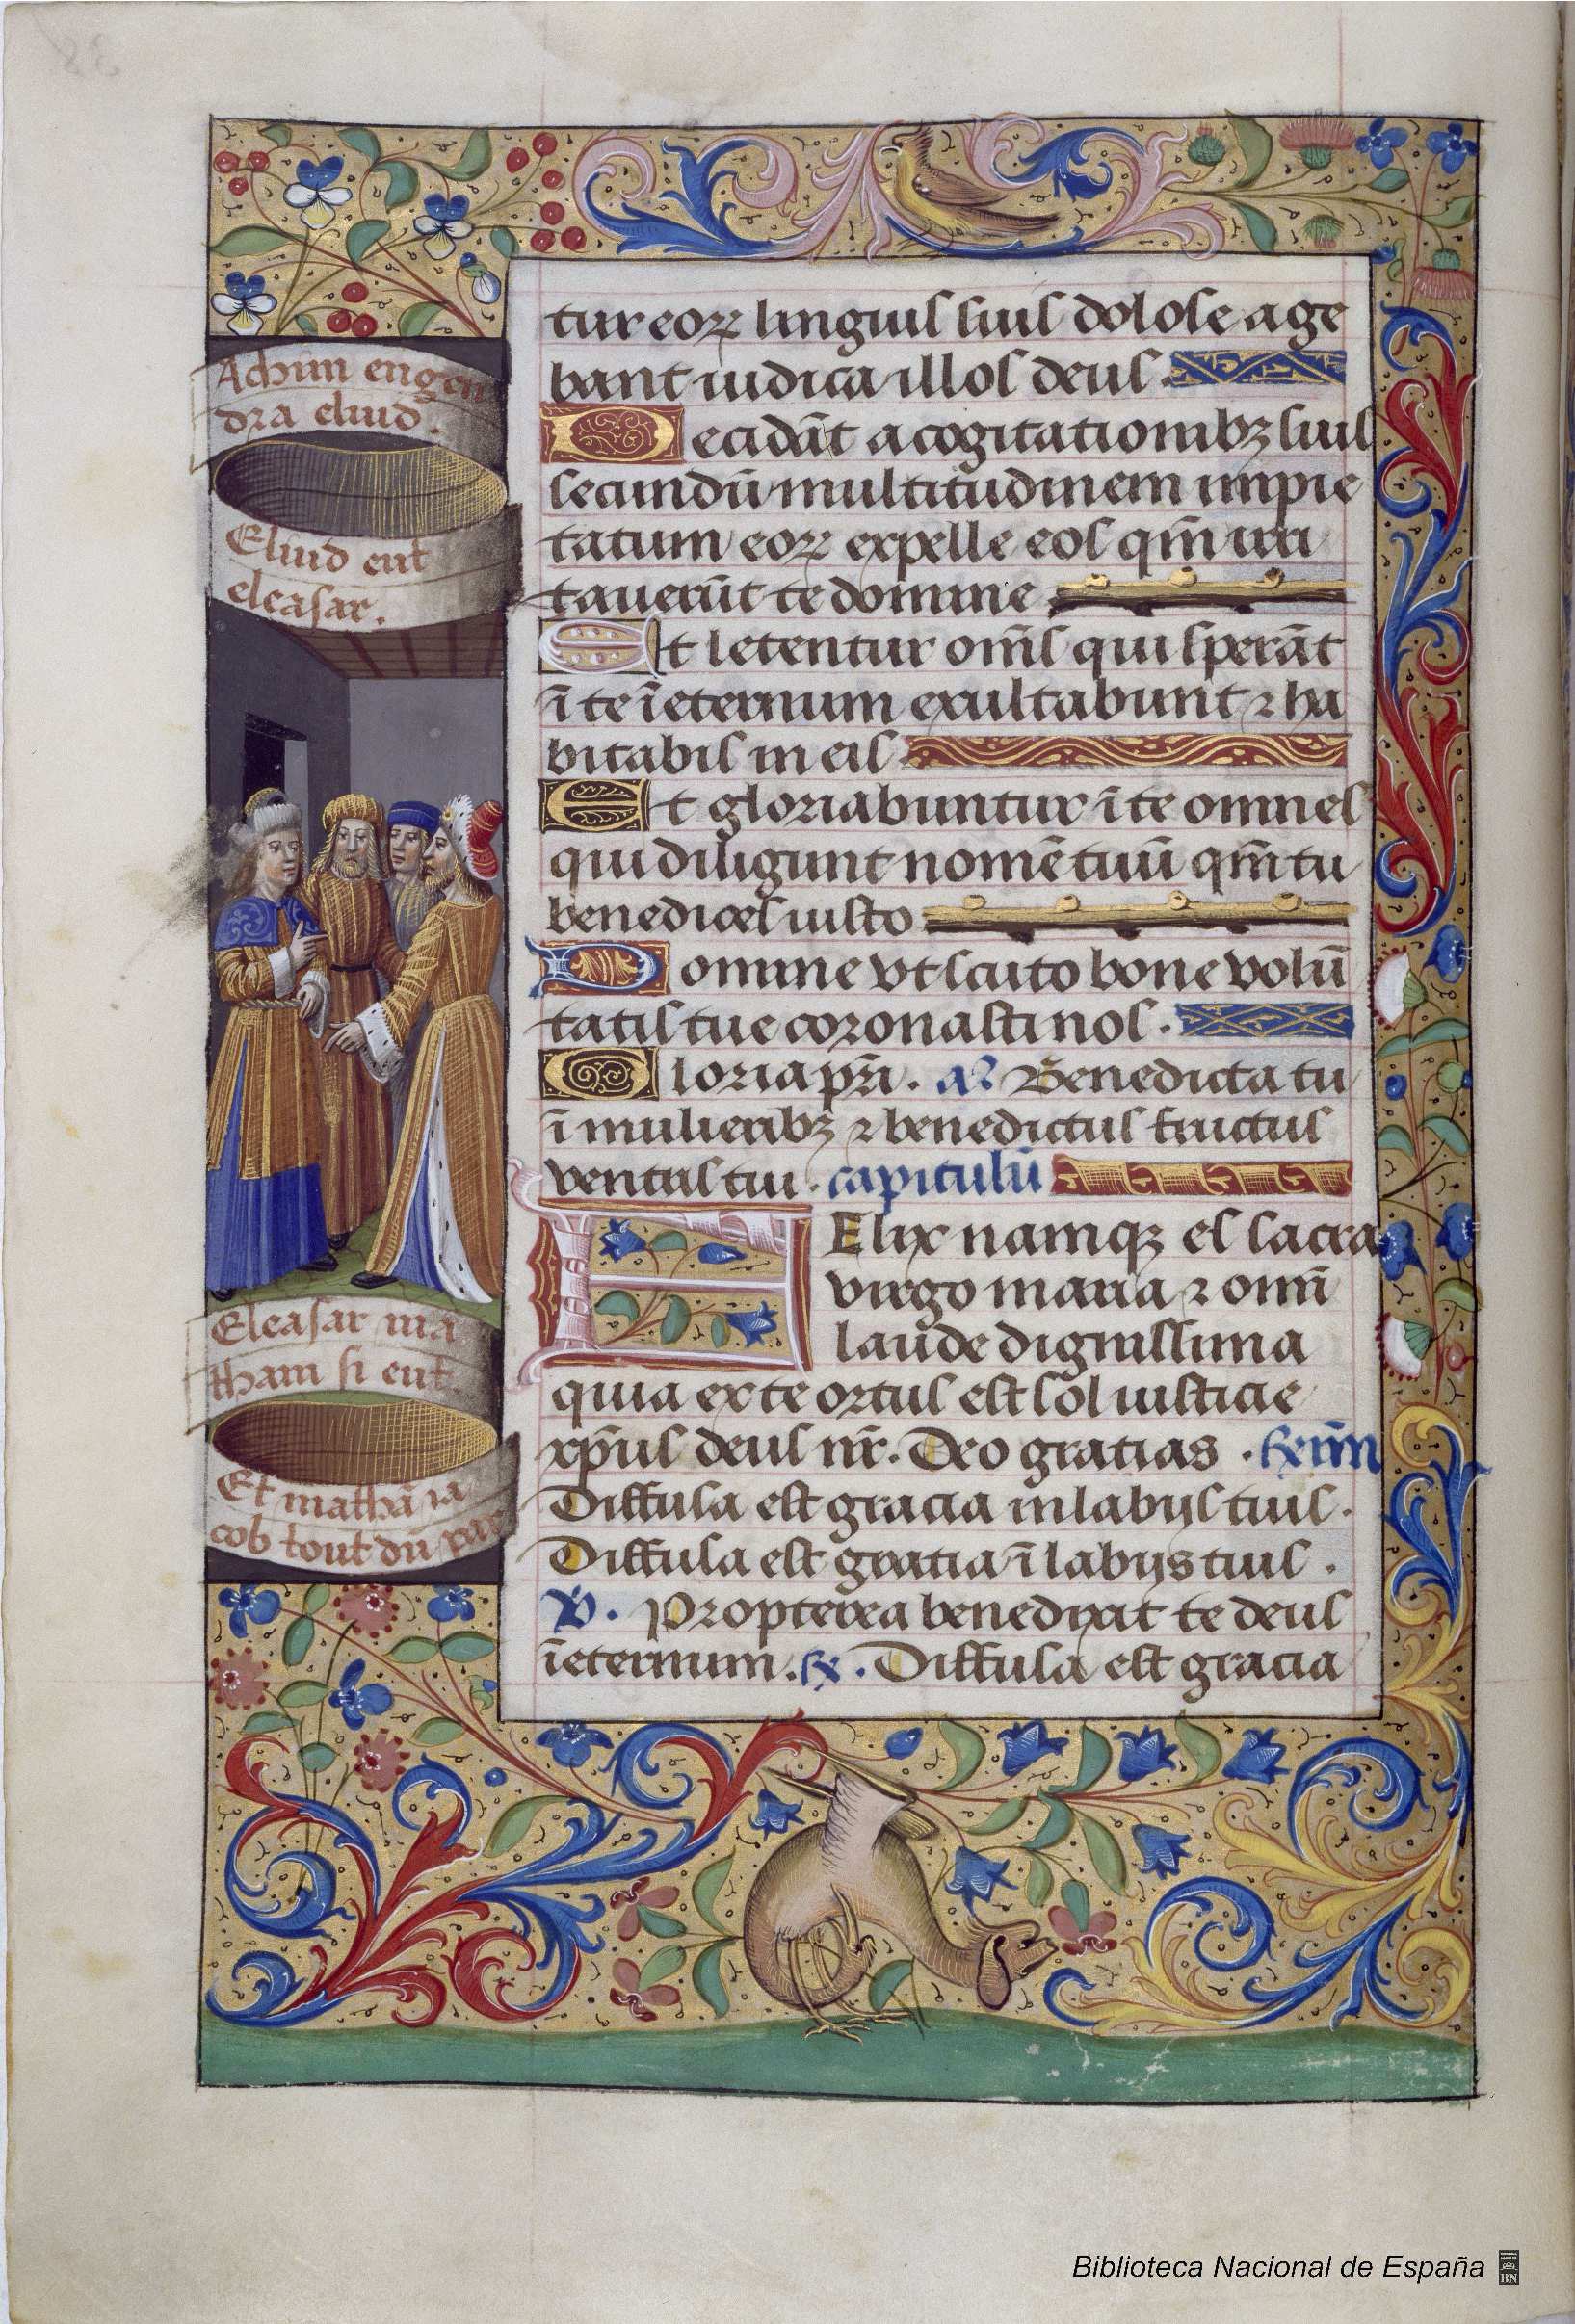 Achim engen
dra eliud.
Eliud eut
eleasar.
Eleasar ma
tham si eut
Et mathā ia
cob tout dū
tur eoꝝ linguis suis dolose age
bant iudica illos deus.
Decidāt a cogitationibꝫ suis
secundū multitudinem impie
tatum eoꝝ expelle eos qm̄ irri
tauerūt te domine
Et letentur om̄s qui sperāt
ī te ī eternum exultabunt ⁊ ha
bitabis in eis
Et gloriabuntur ī te omnes
qui diligunt nomē tuū qm̄ tu
benedices iusto
Domine vt scuto bone volū
tatis tue coronasti nos.
Gloria pr̄i. añ Benedicta tu
ī mulieribꝫ ⁊ benedictus fructus
ventris tui. capitulū
FElix namqꝫ es sacra
virgo maria ⁊ omī
laude dignissima
quia ex te ortus est sol iusticie
xp̄us deus nr̄. Deo gratias.
Diffusa est gracia in labijs tuis.
Diffusa est gratia ī labijs tuis.
℣. Propterea benedixit te deus
ī eternum. ℟. Diffusa est gracia
Biblioteca Nacional de España
BN